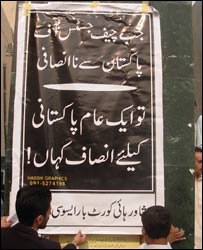 جب چیف جسٹس آف
پاکستان سے ناانصافی
تو ایک عام پاکستانی
کیلئے انصاف کہاں!
HASSH GRAPHICS
091-5274198
پشاور ہائی کورٹ بار ایسوسی